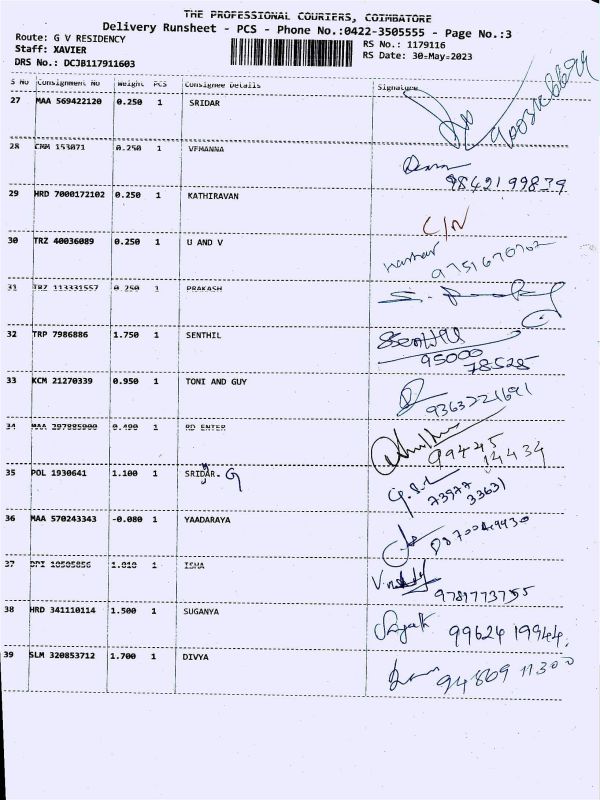 THE PROFESSIONAL COURIERS, COIMBATORE
Delivery Runsheet - PCS - Phone No.:0422-3505555 - Page No.:3
Route: G V RESIDENCY
Staff: XAVIER
DRS No.: DCJB117911603
RS No.: 1179116
RS Date: 30-May-2023
S No Consignment No Weight PCS Consignee Details Signature
27 MAA 569422120 0.250 1 SRIDAR
28 CMM 153071 0.250 1 VEMANNA
9842199839
29 HRD 7000172102 0.250 1 KATHIRAVAN
C/N
30 TRZ 40036089 0.250 1 U AND V
9751670702
31 TRZ 113331557 0.250 1 PRAKASH
32 TRP 7986886 1.750 1 SENTHIL
Senthil
95000
78525
33 KCM 21270339 0.950 1 TONI AND GUY
9363221691
34 MAA 297885900 0.490 1 RD ENTER
99445
14434
35 POL 1930641 1.100 1 SRIDAR. G
73977
33631
36 MAA 570243343 -0.080 1 YAADARAYA
37 DPI 10505056 1.010 1 ISHA
38 HRD 341110114 1.500 1 SUGANYA
99624 19944.
39 SLM 320853712 1.700 1 DIVYA
94869 11300